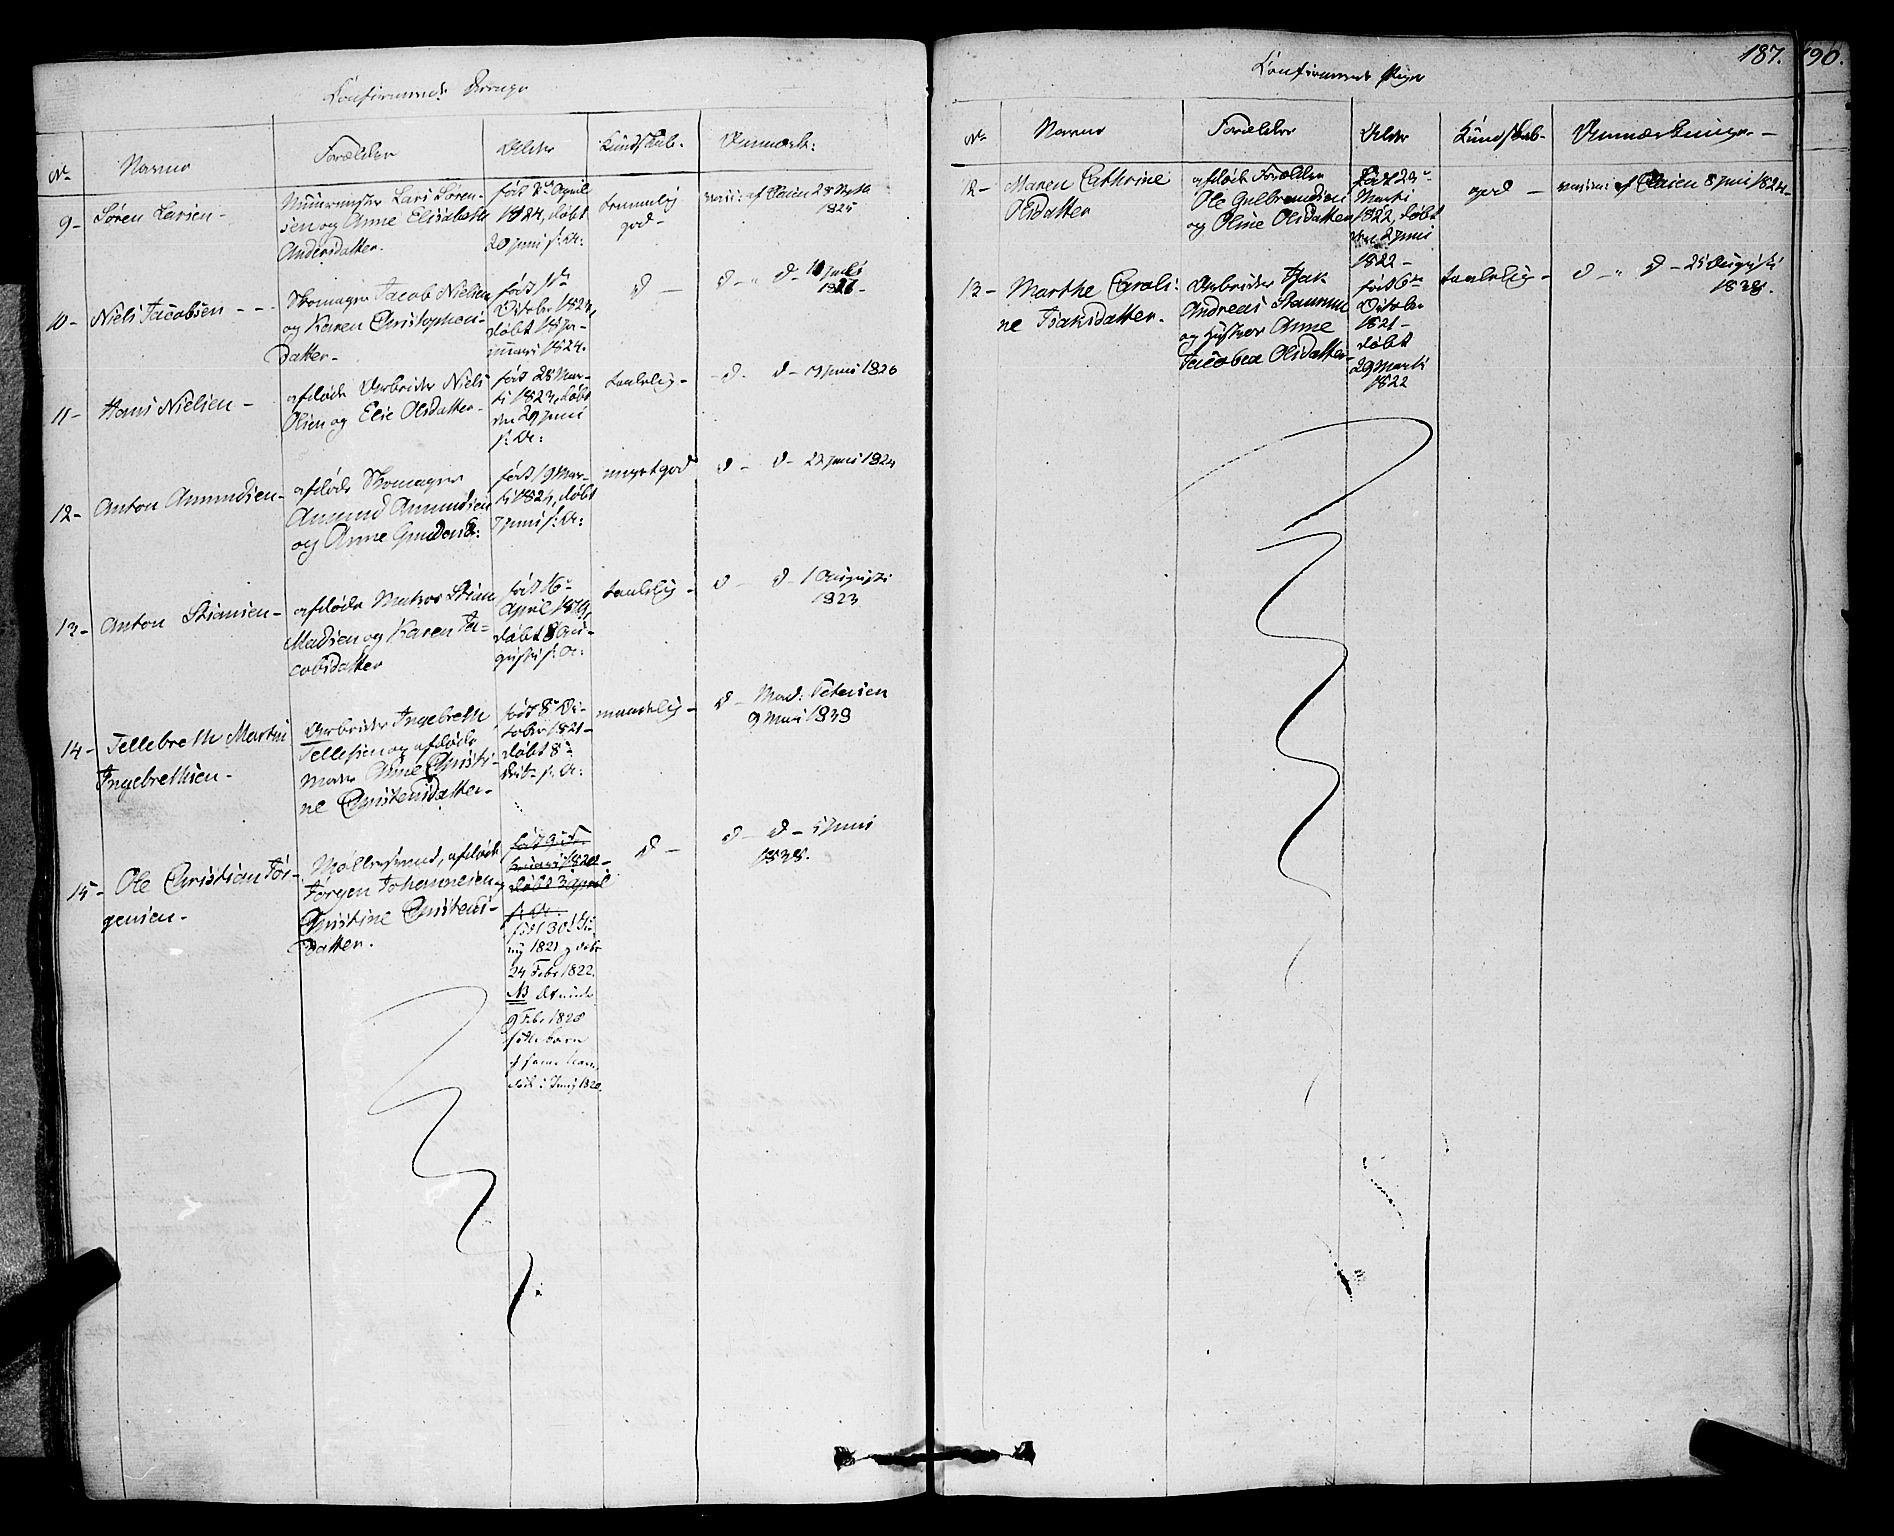 Confirmerede Drenge
No
Navne
Forældre
Alder
Kundskab.
Anmærk:
9-
Søren Larsen -
Muurmester Lars Søren-
sen og Anne Elisabeth
Andersdatter.
født 8de April
1824, døbt
20 Juni s: A:
temmelig
god-
vacc: af Thaien
1825
10-
Niels Jacobsen - - -
Skomager Jacob Nielsen
og Karen Christophers-
datter-
født
October 1823,
døbt 18 Ja-
nuari 1824.
d -
d - " d -
11-
Hans Nielsen -
afdøde Arbeider Niels
Olsen og Elie Olsdatter-
født 28 Mar-
ti 1823, døbt
den 29 Juni
s: A:
taalelig -
- d - d - 9 Juni 1826
12-
Anton Amundsen -
afdøde Skomager
Amund Amundsen
og Anne Gudsd:
født 19 Mar-
ti 1824, døbt
7 Juni s: A:
meget god
d - d - 22 Juni 1824
13-
Anton Stiansen -
afdøde Matros Stian
Madsen og Karen Ja-
cobsdatter
født 16de
April 1819,
døbt 8 Au-
gusti s: A:
taalelig -
d - d - 1 Augusti
1823
14-
Tellebreth Martin
Ingebrethsen -
Arbeider Ingebreth
Tellefsen og afdøde
Anne Christi-
ne Christensdatter-
født 8de Oc-
tober 1821-
døbt 8de
s: A:
maadelig -
d - Mad: Petersen
9 Mai 1839
15-
Ole Christian Jør-
gensen -
Møllersvend, afdøde
Jørgen Johannesen og
Christine Christens-
datter.
født 9de Fe-
bruari 1820-
døbt 3 April
s: A:
født 30
1821 og døbt
24 Febr 1822.
NB
9 Febr 1820
fødte barn
af samme Navn
døde i Juny 1820.
d -
d - d - 5 Juni
1838.
187.
190.
Confirmerede Piger
No
Navne
Forældre
Alder
Kundskab-
Anmærkninger -
12 -
Maren Cathrine
Olsdatter
afdøde Forældre
Ole Gulbrandsen
og Oline Olsdatter
født 23de
Marti
1822, døbt
den 2 Juni
1822 -
god -
vacc: af Thaien 8 Juni 1824.
13 -
Marthe Caroli-
ne Isaksdatter.
Arbeider Isak
Andreas
og Hustroe Anne
Jacobea Olsdatter
født 6te
October
1821 -
døbt
29 Marti
1822
taalelig -
d - " d - 25 Augusti
1838.